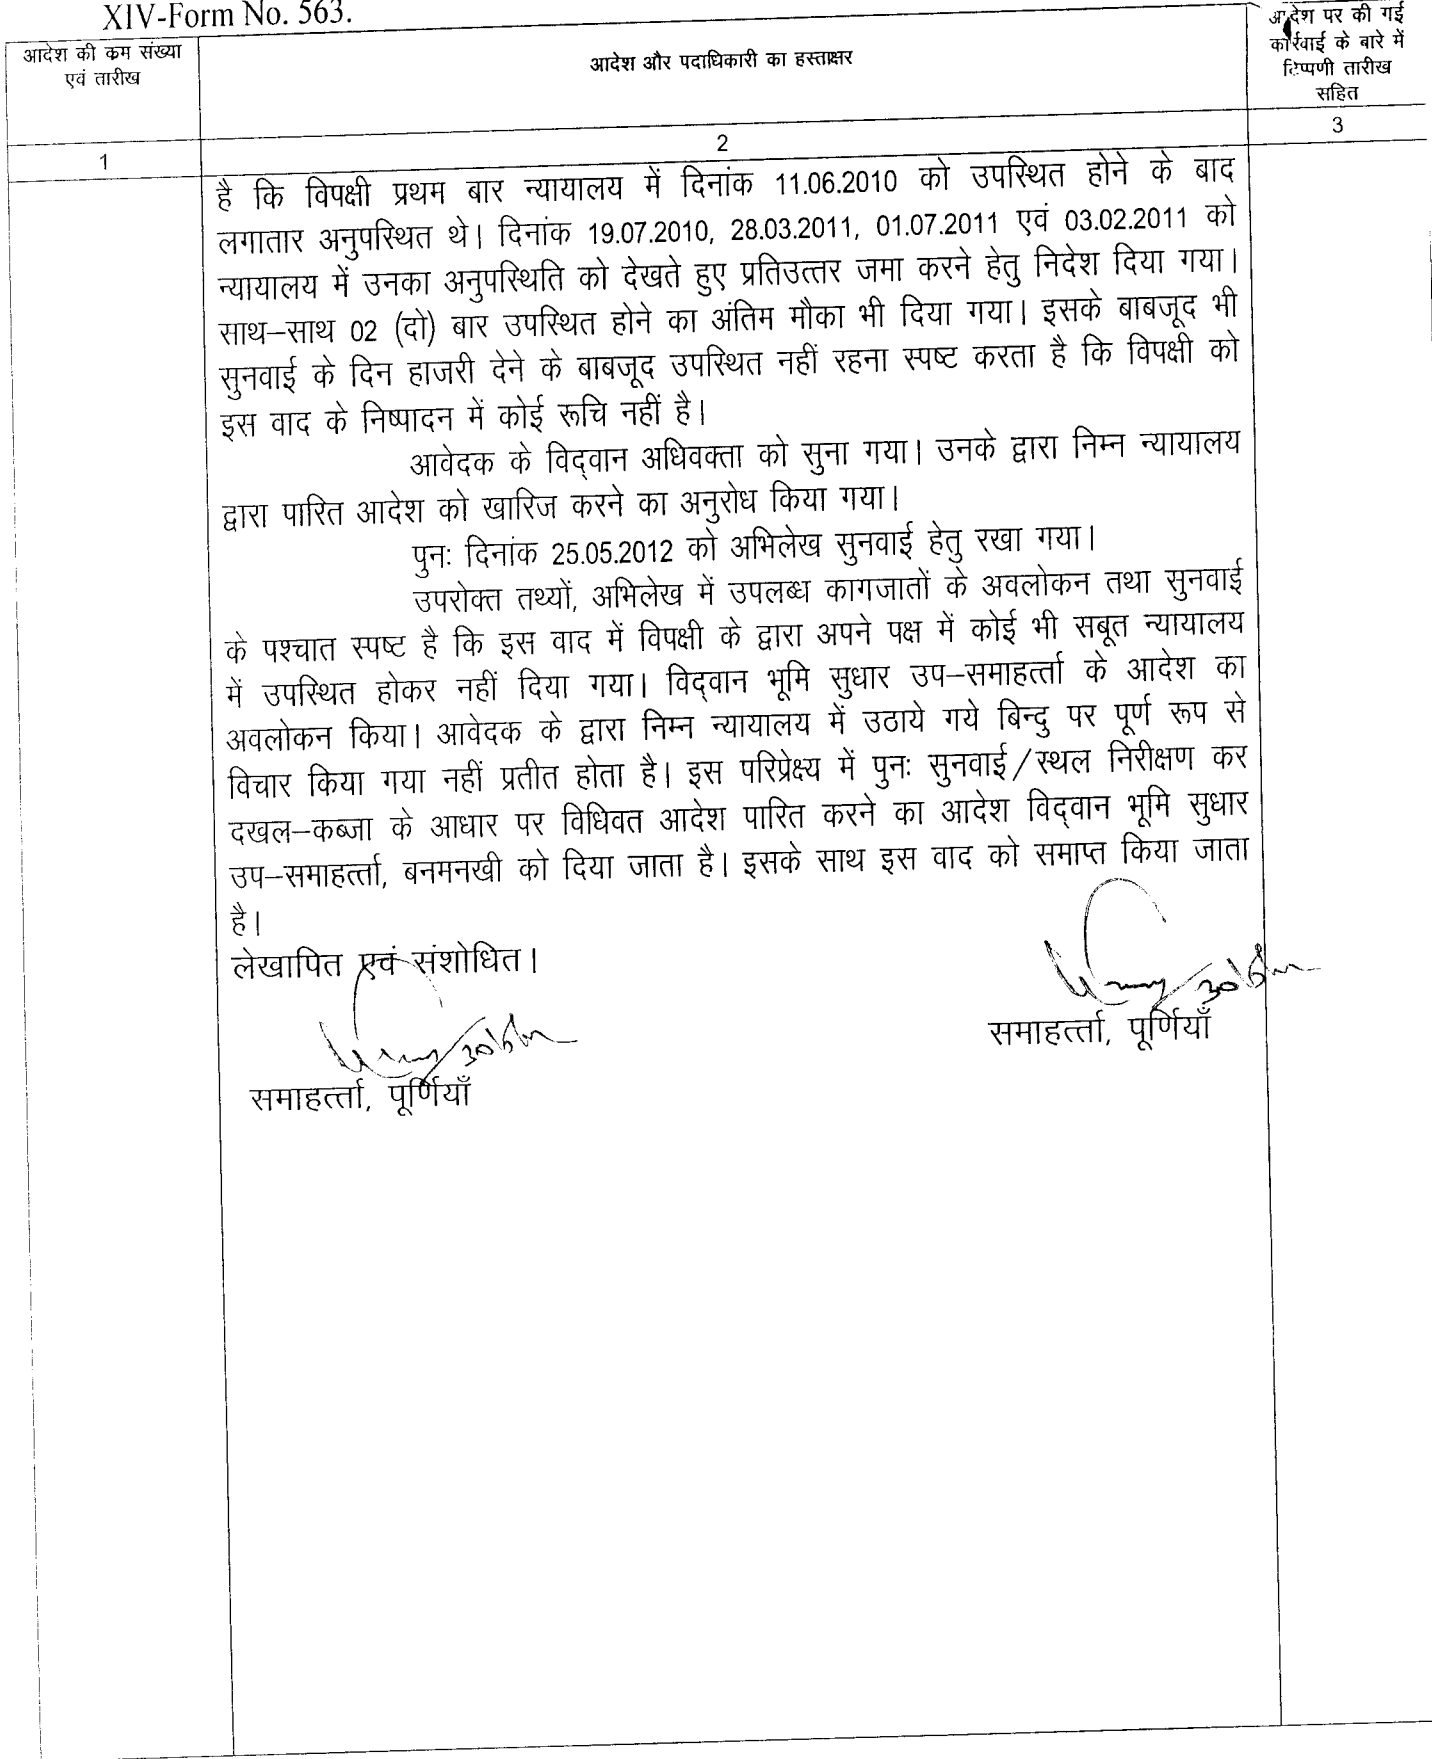 XIV-Form No. 563.
आदेश की कम संख्या
एवं तारीख
आदेश और पदाधिकारी का हस्ताक्षर
आदेश पर की गई
कार्रवाई के बारे में
टिप्पणी तारीख
सहित
1
2
3
है कि विपक्षी प्रथम बार न्यायालय में दिनांक 11.06.2010 को उपस्थित होने के बाद
लगातार अनुपस्थित थे। दिनांक 19.07.2010, 28.03.2011, 01.07.2011 एवं 03.02.2011 को
न्यायालय में उनका अनुपस्थिति को देखते हुए प्रतिउत्तर जमा करने हेतु निदेश दिया गया।
साथ–साथ 02 (दो) बार उपस्थित होने का अंतिम मौका भी दिया गया। इसके बाबजूद भी
सुनवाई के दिन हाजरी देने के बाबजूद उपस्थित नहीं रहना स्पष्ट करता है कि विपक्षी को
इस वाद के निष्पादन में कोई रूचि नहीं है।
आवेदक के विद्वान अधिवक्ता को सुना गया। उनके द्वारा निम्न न्यायालय
द्वारा पारित आदेश को खारिज करने का अनुरोध किया गया।
पुनः दिनांक 25.05.2012 को अभिलेख सुनवाई हेतु रखा गया।
उपरोक्त तथ्यों, अभिलेख में उपलब्ध कागजातों के अवलोकन तथा सुनवाई
के पश्चात स्पष्ट है कि इस वाद में विपक्षी के द्वारा अपने पक्ष में कोई भी सबूत न्यायालय
में उपस्थित होकर नहीं दिया गया। विद्वान भूमि सुधार उप–समाहर्त्ता के आदेश का
अवलोकन किया। आवेदक के द्वारा निम्न न्यायालय में उठाये गये बिन्दु पर पूर्ण रूप से
विचार किया गया नहीं प्रतीत होता है। इस परिप्रेक्ष्य में पुनः सुनवाई/स्थल निरीक्षण कर
दखल–कब्जा के आधार पर विधिवत आदेश पारित करने का आदेश विद्वान भूमि सुधार
उप–समाहर्त्ता, बनमनखी को दिया जाता है। इसके साथ इस वाद को समाप्त किया जाता
है।
लेखापित एवं संशोधित।
समाहर्त्ता, पूर्णियाँ
समाहर्त्ता, पूर्णियाँ